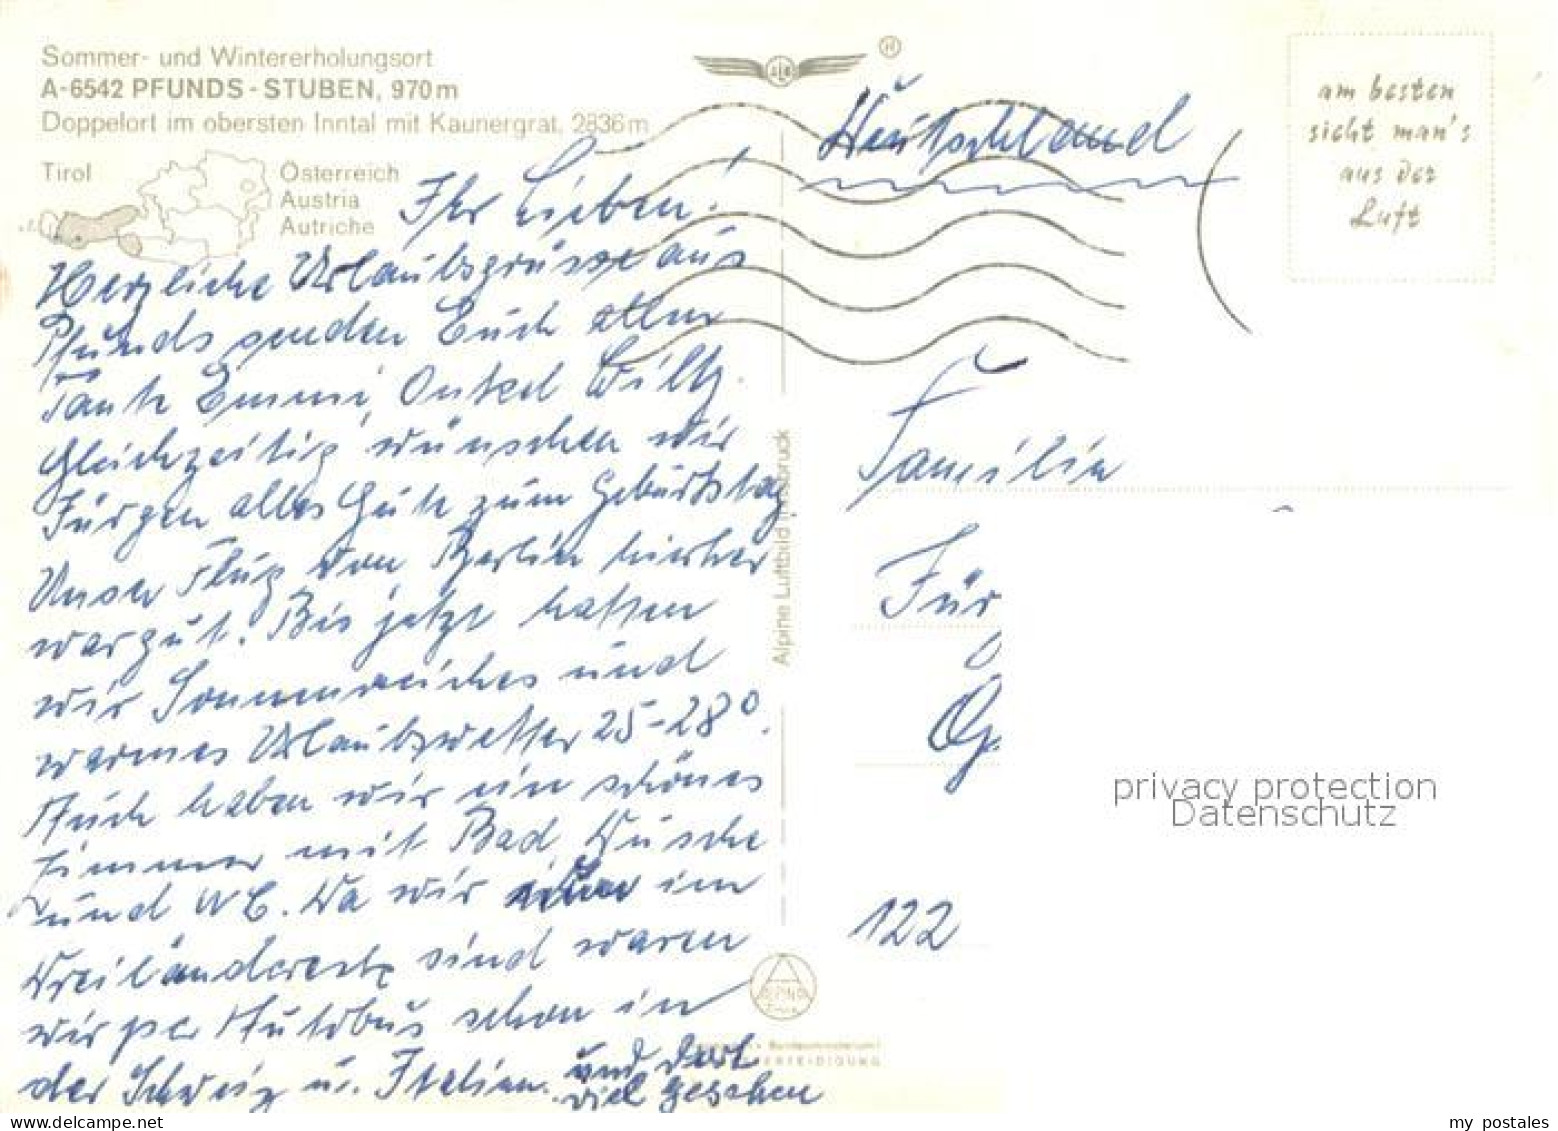 Sommer- und Wintererholungsort
A-6542 PFUNDS - STUBEN, 970 m
Doppelort im obersten Inntal mit Kaunergrat, 2836 m
Tirol
Österreich
Austria
Autriche
Ihr Lieben!
Herzliche Urlaubsgrüsse aus
Pfunds senden Euch allen
Tante Emmi, Onkel Willy.
Gleichzeitig wünschen wir
Jürgen alles Gute zum Geburtstag
Unser Flug von Berlin hierher
war gut. Bis jetzt hatten
wir Sonnenreiches und
warmes Urlaubswetter 25-28°.
Auch haben wir ein schönes
Zimmer mit Bad, Dusche
und WC. Da wir hier im
Dreiländereck sind waren
wir per Autobus schon in
der Schweiz u. Italien. und dort
viel gesehen
Alpine Luftbild Innsbruck
ALPINE
Deutschland
am besten
sieht man's
aus der
Luft
Familie
Jür
122
privacy protection
Datenschutz
my postales